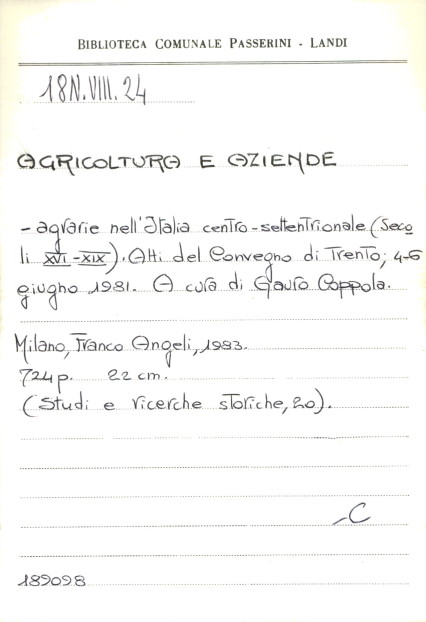 BIBLIOTECA COMUNALE PASSERINI - LANDI
18N.VIII.24
AGRICOLTURA E AZIENDE
- agrarie nell'Italia centro-settentrionale (Seco
li XVI-XIX). Atti del Convegno di Trento; 4-6
giugno 1981. A cura di Gauro Coppola.
Milano, Franco Angeli, 1983.
724 p. 22 cm.
(Studi e ricerche storiche, 20).
-C
189098